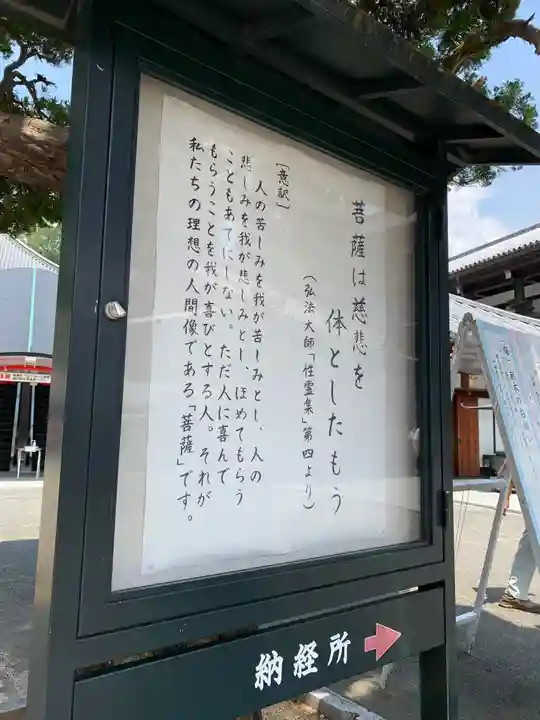 菩薩は慈悲を
体としたもう
(弘法大師「性霊集」第四より)
〔意訳〕
人の苦しみを我が苦しみとし、人の
悲しみを我が悲しみとし、ほめてもらう
こともあてにしない。ただ人に喜んで
もらうことを我が喜びとする人。それが
私たちの理想の人間像である「菩薩」です。
納経所